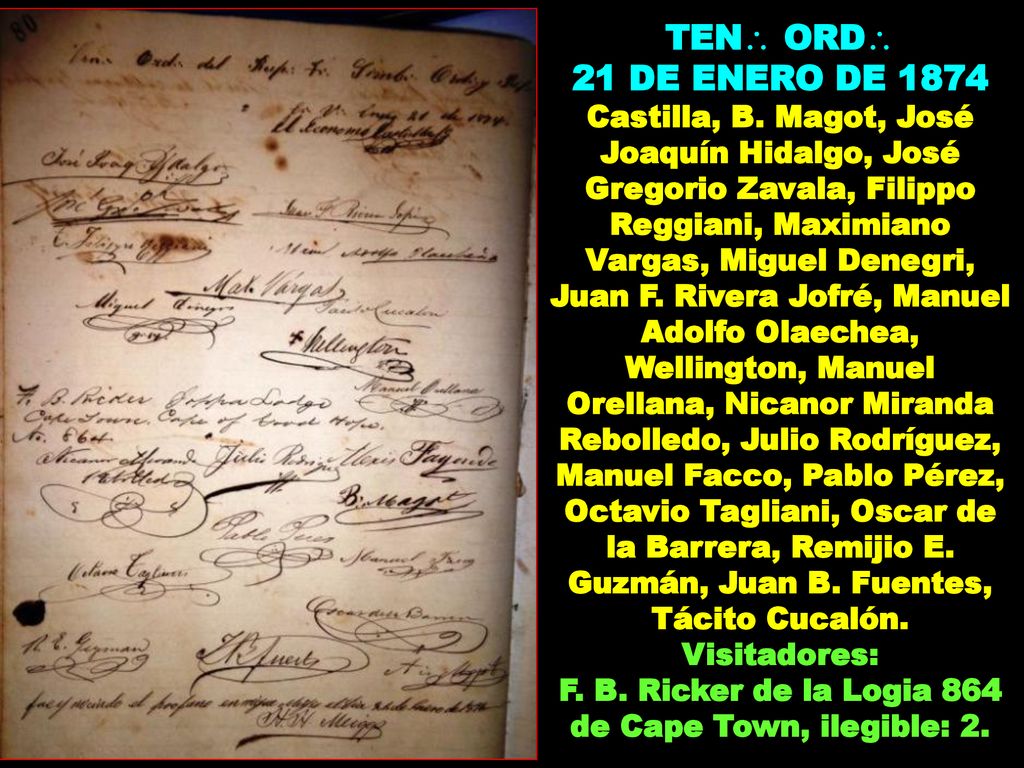 80
Ten∴ Ord∴ del Resp∴ Tr∴ Simb∴ Orden y
Enero 21 de 1874
El Economo
José Joaq Hidalgo
José Greg Zavala Juan F Rivera Jofré
Man Adolfo Olaechea
Max Vargas
Miguel Tácito Cucalon
Wellington
Manuel Orellana
F. B. Ricker Joppa Lodge
Cape Town. Cape of Good Hope.
No. 864
Nicanor Miranda Julio Rodriguez Alexis Fagonde
Rebolledo
B. Magot
Pablo Perez
Manuel Facco
Octavio Tagliani
Oscar de la Barrera
R. E. Guzman
J B Fuentes
fue iniciado el profano enrique Meiggs el dia 26 de Enero de 1874
H. H. Meiggs
TEN∴ ORD∴
21 DE ENERO DE 1874
Castilla, B. Magot, José
Joaquín Hidalgo, José
Gregorio Zavala, Filippo
Reggiani, Maximiano
Vargas, Miguel Denegri,
Juan F. Rivera Jofré, Manuel
Adolfo Olaechea,
Wellington, Manuel
Orellana, Nicanor Miranda
Rebolledo, Julio Rodríguez,
Manuel Facco, Pablo Pérez,
Octavio Tagliani, Oscar de
la Barrera, Remijio E.
Guzmán, Juan B. Fuentes,
Tácito Cucalón.
Visitadores:
F. B. Ricker de la Logia 864
de Cape Town, ilegible: 2.